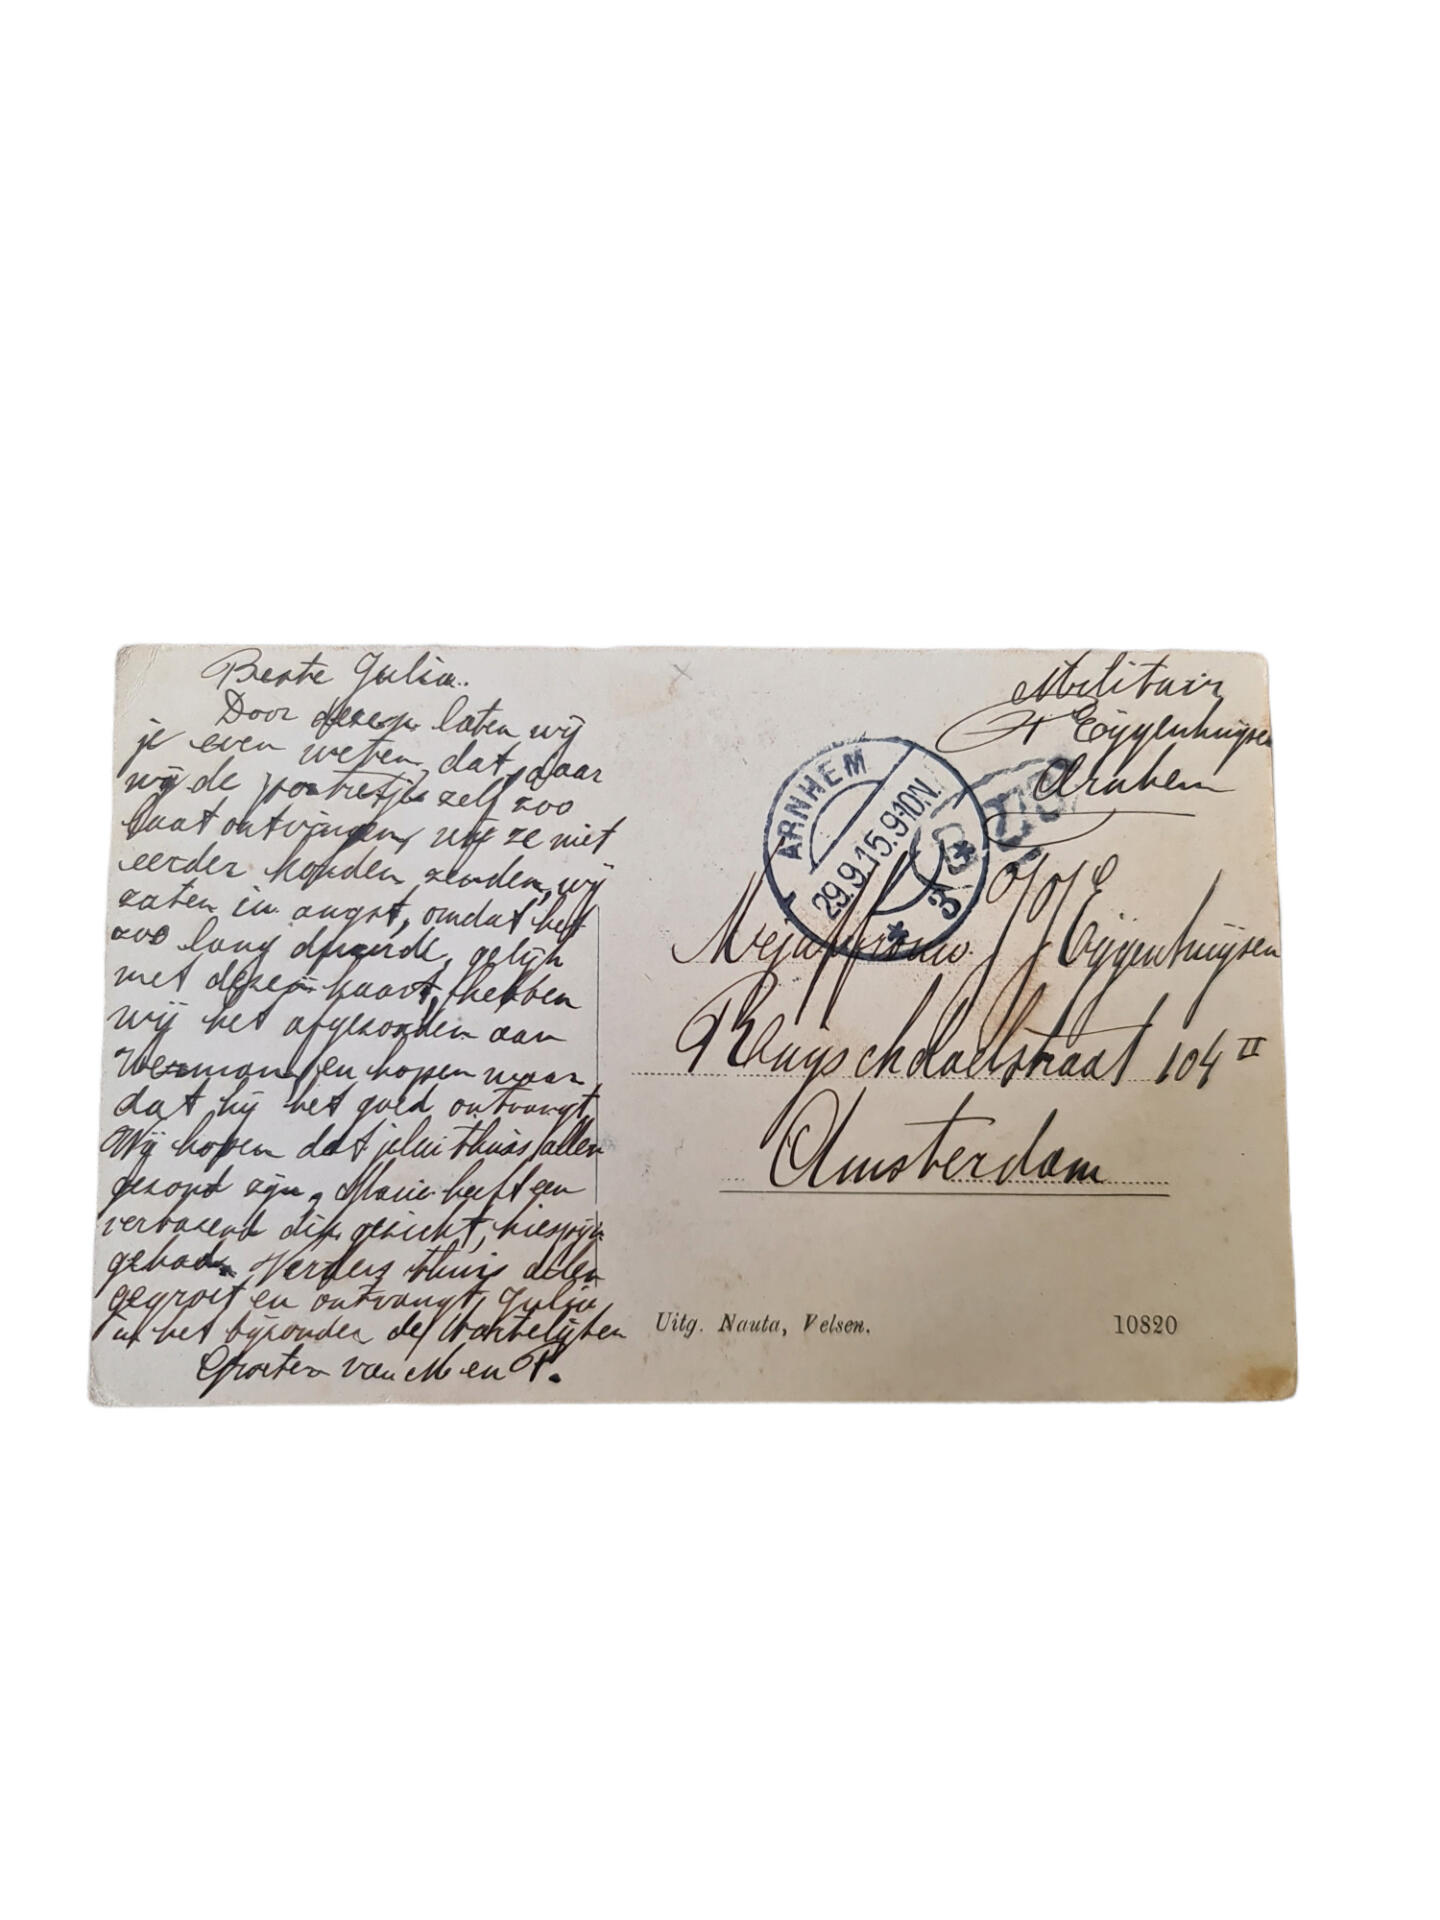 Beste Julia.
Door dezen laten wij
je even weten, dat, daar
wij de portretjes zelf zoo
laat ontvingen, wij ze niet
eerder konden zenden, wij
zaten in angst, omdat het
zoo lang duurde, gelijk
met deze kaart, hebben
wij het afgezonden aan
en hopen maar
dat hij het goed ontvangt,
Wij hopen dat jelui thuis allen
gezond zijn, Marie heeft een
verbazend dik gezicht, kiespijn
gehad. Verders thuis allen
gegroet en ontvangt, Julia,
in het bijzonder de hartelijken
Groeten van M en P.
Militair
P Eijgenhuijsen
Arnhem
ARNHEM
29.9.15.9-10N.
3
Mejuffrouw J J E Eijgenhuijsen
Ruijschdaelstraat 104 II
Amsterdam
Uitg. Nauta, Velsen.
10820